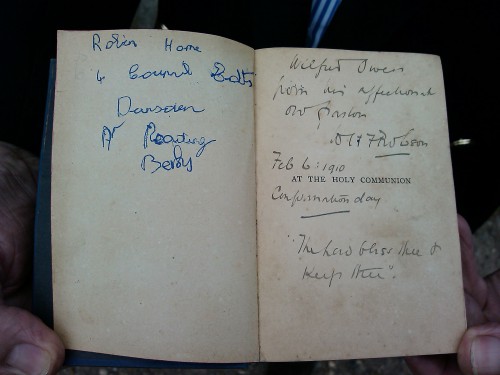 Robin
4 Council Cotts
Dunsden
Nr Reading
Berks
Wilfred Owen
from his affectionate
old parson
Feb 6: 1910
AT THE HOLY COMMUNION
Confirmation day
"The Lord bless thee &
keep thee".